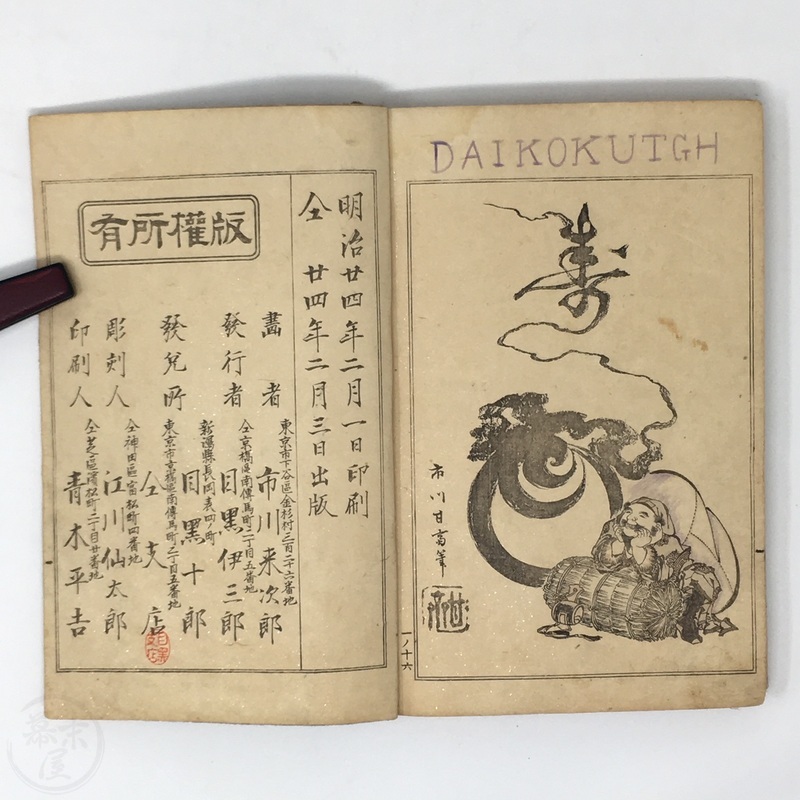 DAIKOKUTGH
寿
市川甘斎筆
一ノ十六
明治廿四年二月一日印刷
仝 廿四年二月三日出版
版權所有
畫者 東京市下谷區金杉村三百二十六番地 市川来次郎
發行者 仝京橋區南傳馬町二丁目五番地 目黒伊三郎
發兌所 新潟縣長岡表四ノ町 目黒十郎
東京市京橋區南傳馬町二丁目五番地 仝支店
彫刻人 仝神田區富松町四番地 江川仙太郎
印刷人 仝芝區濱松町二丁目廿番地 青木平吉
幕末屋